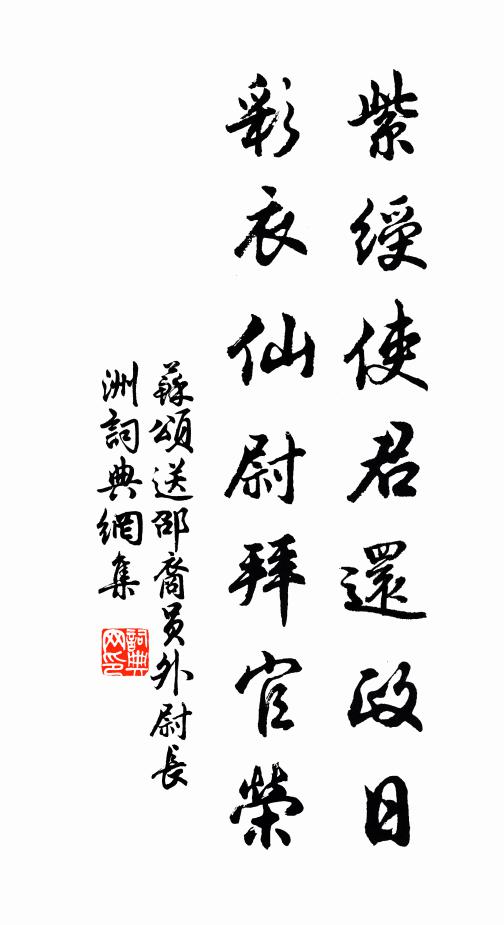 紫綬使君還政日
彩衣仙尉拜官榮
蘇頌送邵裔員外尉長
洲詞典網集
詞典
网印